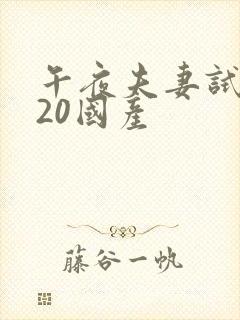 午夜夫妻試
20國產
藤谷一帆